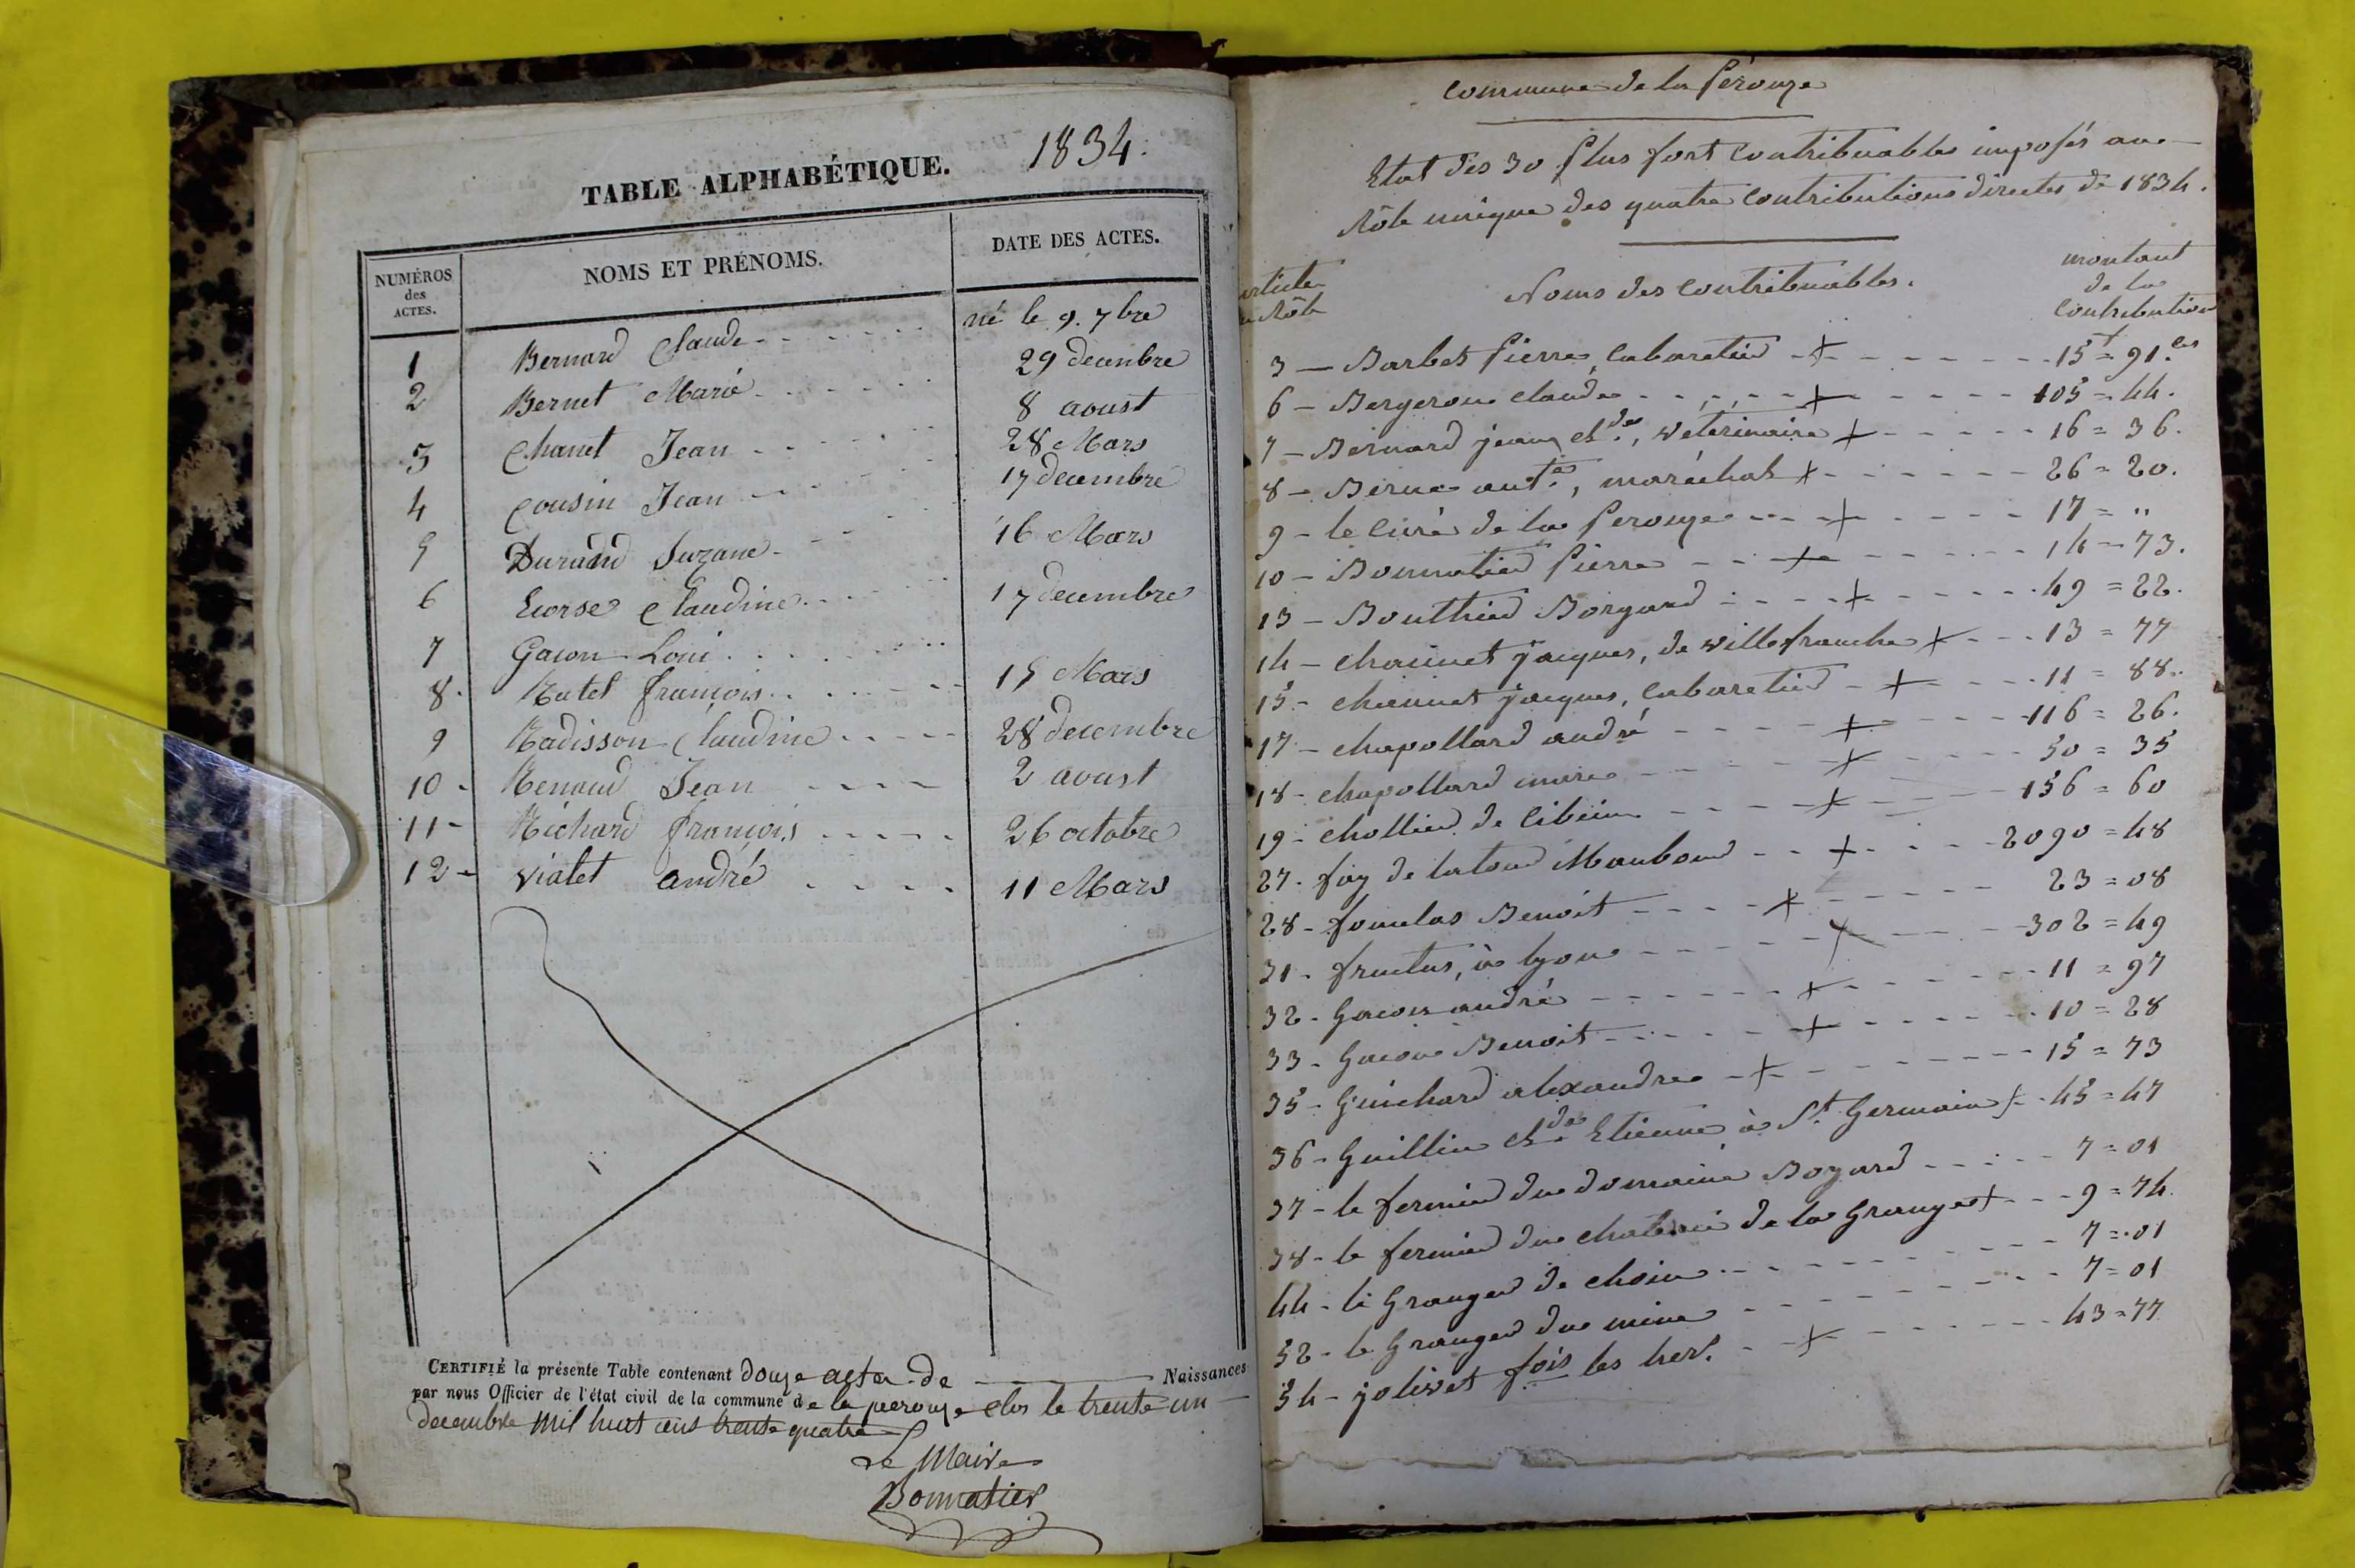 1834.
TABLE ALPHABÉTIQUE.
NUMÉROS des ACTES. NOMS ET PRÉNOMS. DATE DES ACTES.
1 Bernard Claude né le 9. 7bre
2 Bernet Marie 29 decembre
3 Chanet Jean 8 aoust
4 Cousin Jean 28 Mars
5 Durand Suzane 17 decembre
6 Claudine 16 Mars
7 Gacon Loui 17 decembre
8. Ratel françois 15 Mars
9 Radisson Claudine 28 decembre
10 - Renaud Jean 2 aoust
11 - Richard françois 26 octobre
12 - Vialet andré 11 Mars
CERTIFIÉ la présente Table contenant douze actes de Naissances
par nous Officier de l'état civil de la commune de la perouze clos le trente un
decembre mil huit cens trente quatre
Le Maire
Bonnatier
Commune de la Pérouze
Etat des 30 plus fort Contribuables imposés au
Rôle unique des quatre Contributions directes de 1834.
article
Rôle
Noms des Contribuables.
montant
de la
Contribution
3 — Barbet Pierre, Cabaretier + 15f = 91.ces
6 — Bergeron Claude + 105 = 44.
7 — Bernard jean Cl.de, veterinaire + 16 = 36.
8 — ant.e, maréchal + 26 = 20.
9 — le Curé de la Perouze + 17 = "
10 — Bonnatier Pierre + 14 = 73.
13 — Bouthier + 49 = 22.
14 — jacques, de villefranche + 13 = 77
15 — jacques, Cabaretier + 11 = 88.
17 — chapollard andré + 116 = 26.
18 — chapollard + 50 = 35
19 — chollier de Cibeins + 156 = 60
27 - fay de latour Maubourg + 2090 = 48
28 - Benoit + 23 = 08
31 - fructus, à lyon + 302 = 49
32 - Gacon andré + 11 = 97
33 - Gacon Benoit + 10 = 28
35 - Guichard alexandre + 15 = 73
36 - Guillin Cl.de Etienne à St. Germain + 45 = 47
37 - le fermier du domaine Bozard 7 = 01
38 - le fermier du de la Grange + 9 = 74.
44 - le Granger de 7 = 01
52 - le Granger du 7 = 01
54 - jolivet fois les her. + 43 = 77